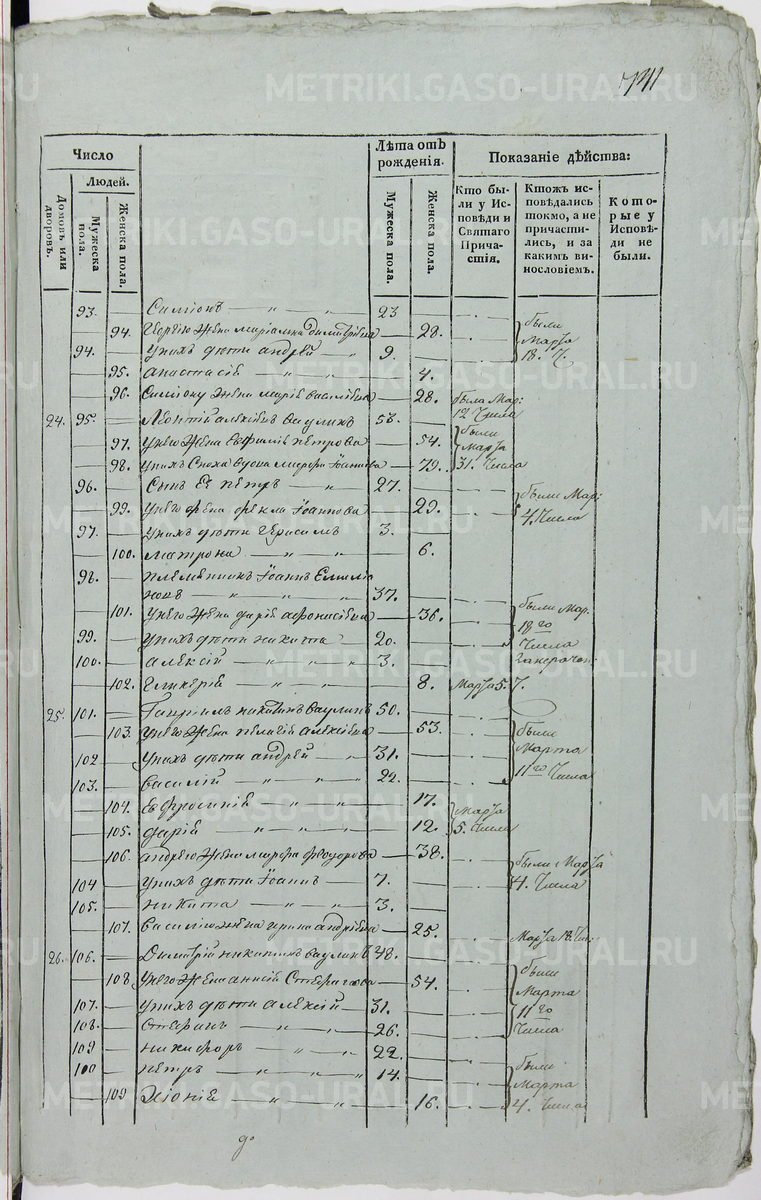 741
Число
Лѣта отъ рожденія.
Показаніе дѣйства:
Людей.
Домовъ или дворовъ.
Мужеска пола.
Женска пола.
Мужеска пола.
Женска пола.
Кто были у Исповѣди и Святаго Причастія.
Ктожъ исповѣдались токмо, а не причастились, и за какимъ винословіемъ.
Которые у Исповѣди не были.
93. Симіонъ — „ — „ 23
94. Георгію жена Маріамна Димитріева — 28. были
Марта
94. у нихъ дѣти Андрей — „ 9. 18. Ч.
95. Анастасія — „ — „ 4.
96. Симіону жена Марія Василіева — 28. была Мар:
12 Числа
24. 95. Леонтій Алексіевъ Ваулинъ 53. были
97. У него жена Евфимія Петрова — 54. Марта
98. у нихъ Сноха вдова Марфа Іоаннова — 79. 31. Числа
96. Сынъ Ея Петръ — „ 27.
99. У него жена Фекла Іоаннова — 29. были Мар:
4. Числа
97. у нихъ дѣти Герасимъ 3.
100. Матрона — „ — „ 6.
98. племянникъ Іоаннъ Емиліа
новъ — „ — „ 37.
101. У него жена Дарія Афонасіева — 36. были Мар.
18го
99. у нихъ дѣти Никита — 20. Числа
100. Алексій — „ — „ 3.
102. Гликерія — „ — „ 8. Марта 5. Ч.
25. 101. Гавріилъ Никитинъ Ваулинъ 50.
103. У него жена Пелагія Алексіева — 53. были
Марта
102 У нихъ дѣти Андрей — „ 31. 11го Числа
103. Василій — „ — „ 22.
104. Евфросинія — „ — „ 17. Марта
105. Дарія — „ — „ 12. 5. Числа
106. Андрею жена Марфа Феодорова — 38.
были Марта
104 у нихъ дѣти Іоаннъ — 7. 4. Числа
105. Никита — „ — „ 3.
107. Василію жена Ирина Андріева — 25. Марта 18. Чис:
26. 106. Димитрій Никитинъ Ваулинъ 48.
были
108 У него жена Анисія Стефанова — 54. Марта
107. у нихъ дѣти Алексій — 31. 11го
108. Стефанъ — „ — „ 26. Числа
109 Никифоръ — „ — „ 22. были
100 Петръ — „ — „ 14. Марта
109 Хіонія — „ — „ 16. 4. Числа
METRIKI.GASO-URAL.RU